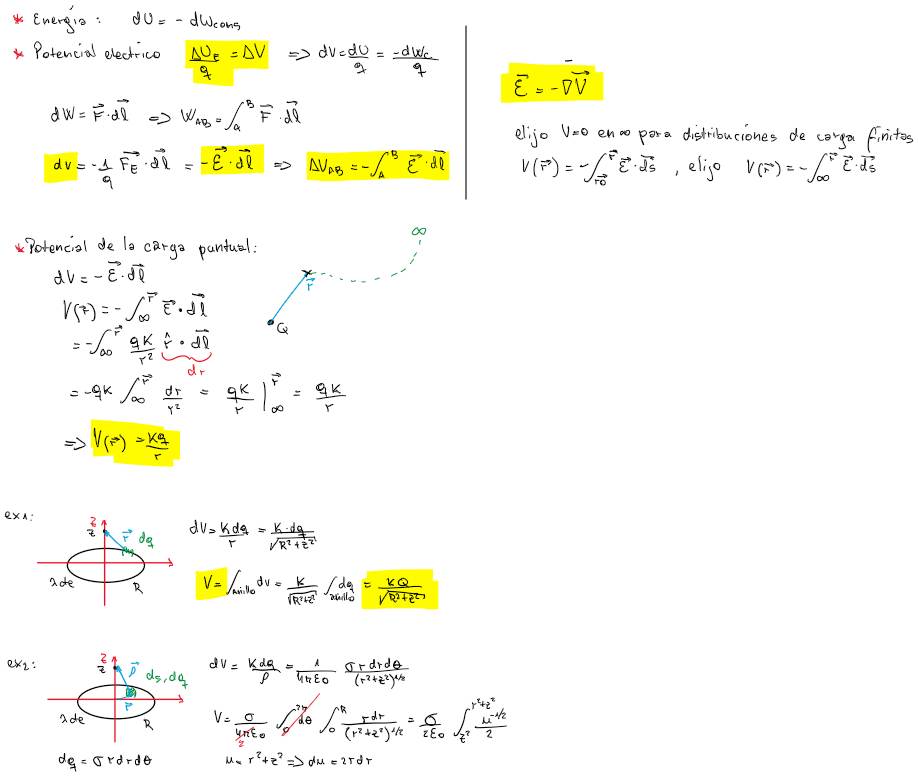 * Energía: dU = - dWcons
* Potencial electrico ΔU_E/q = ΔV => dV = dU/q = -dWc/q
dW = F⃗·dl⃗ => W_AB = ∫_a^B F⃗·dl⃗
dv = -1/q F⃗_E·dl⃗ = -E⃗·dl⃗ => ΔV_AB = -∫_A^B E⃗·dl⃗
E⃗ = -∇V⃗
elijo V=0 en ∞ para distribuciones de carga finitas
V(r⃗) = -∫_r⃗0^r⃗ E⃗·ds⃗ , elijo V(r⃗) = -∫_∞^r⃗ E⃗·ds⃗
* Potencial de la carga puntual:
dV = -E⃗·dl⃗
V(r⃗) = -∫_∞^r⃗ E⃗·dl⃗
= -∫_∞^r⃗ qK/r² r̂·dl⃗
dr
= -qK ∫_∞^r⃗ dr/r² = qK/r |_∞^r⃗ = qK/r
=> V(r⃗) = Kq/r
∞
r⃗
Q
ex1:
z
z
r⃗
dq
λ dθ
R
dV = K dq/r = K·dq/√(R²+z²)
V = ∫_anillo dv = K/√(R²+z²) ∫_anillo dq = KQ/√(R²+z²)
ex2:
z
z
ρ⃗
ds, dq
r
λ dθ
R
dq = σ r dr dθ
dV = K dq/ρ = 1/4πε0 σ r dr dθ/(r²+z²)^1/2
V = σ/4πε0 ∫_0^2π dθ ∫_0^R r dr/(r²+z²)^1/2 = σ/2ε0 ∫_z²^r²+z² μ^-1/2/2
2
μ = r²+z² => dμ = 2r dr